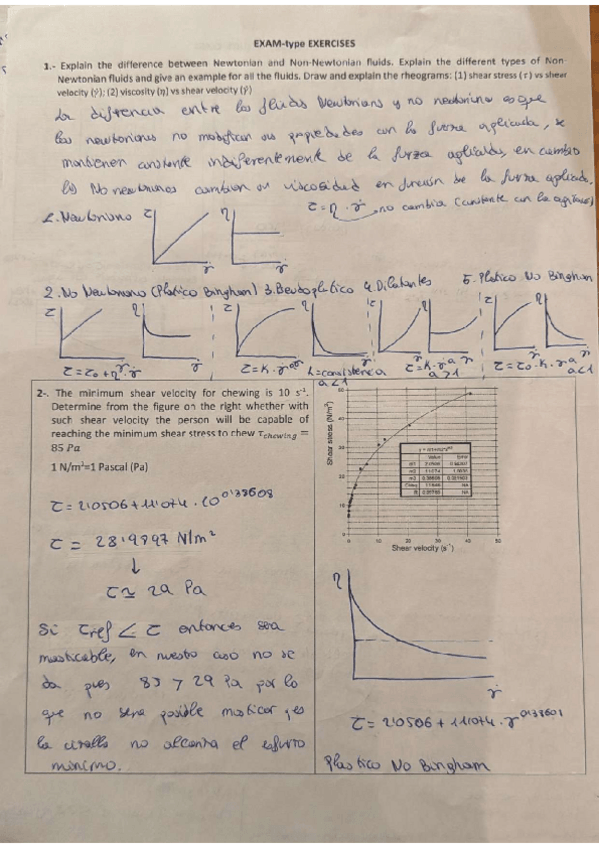 EXAM-type EXERCISES
1.- Explain the difference between Newtonian and Non-Newtonian fluids. Explain the different types of Non-
Newtonian fluids and give an example for all the fluids. Draw and explain the rheograms: (1) shear stress (τ) vs shear
velocity (γ̇); (2) viscosity (η) vs shear velocity (γ̇)
La diferencia entre los fluidos Newtonians y no newtonianos es que
los newtonianos no modifican sus propiedades con la fuerza aplicada, se
mantienen constante indiferentemente de la fuerza aplicada, en cambio
los No newtonianos cambian su viscosidad en función de la fuerza aplicada.
1. Newtoniano
τ
γ̇
η
γ̇
τ = η · γ̇ → no cambia (constante con la
2. No Newtoniano (Plastico Bingham)
3.
4. Dilatantes
5. Plastico No Bingham
τ η τ η τ η τ η
γ̇ γ̇ γ̇ γ̇
τ = τ0 + η · γ̇
τ = K · γ̇ᵃ
a<1
K=consistencia
τ = K · γ̇ᵃ
a>1
τ = τ0 · K · γ̇ᵃ
a<1
2-. The minimum shear velocity for chewing is 10 s⁻¹.
Determine from the figure on the right whether with
such shear velocity the person will be capable of
reaching the minimum shear stress to chew τchewing =
85 Pa
1 N/m²=1 Pascal (Pa)
τ = 2'0506 + 11'074 · 10^0'38608
τ = 28'9897 N/m²
↓
τ ≃ 29 Pa
Si τref < τ entonces sera
masticable, en nuestro caso no se
da pues 85 > 29 Pa por lo
que no sera posible masticar
la no alcanza el esfuerzo
minimo.
Shear stress (N/m²)
50
40
30
20
10
0
0 10 20 30 40 50
Shear velocity (s⁻¹)
Value Error
η
γ̇
τ = 2'0506 + 11'074 · γ̇^0'38601
Plastico No Bingham